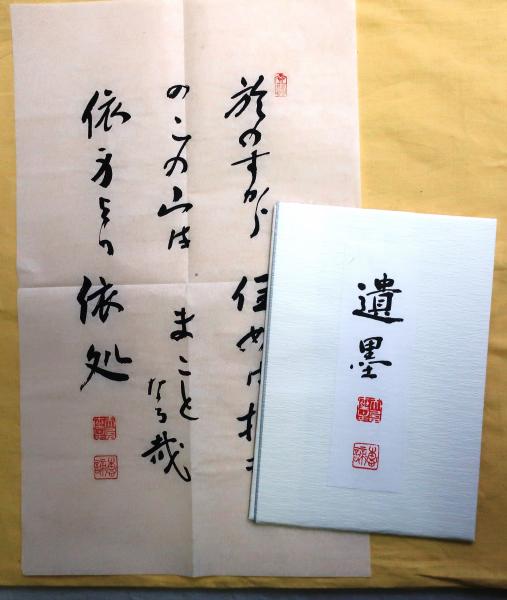 於のすから 住めは持
のこの山は まこと なる哉
依身より 依処
遺墨